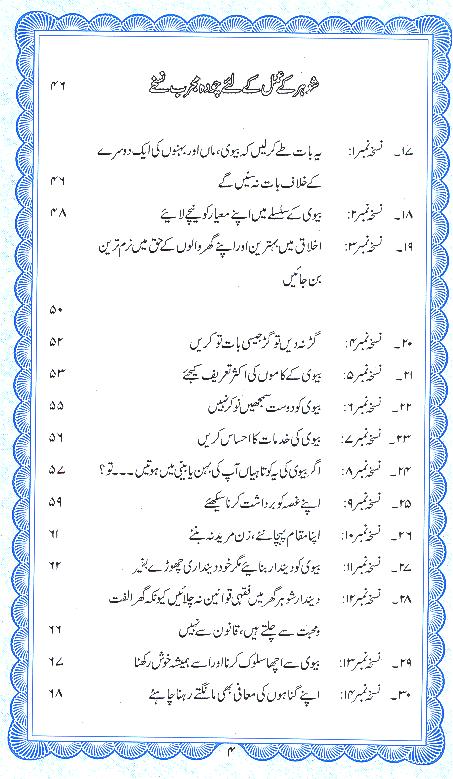 شوہر کے عمل کے لئے چودہ مجرب نسخے ۴۶
۱۷۔ نسخہ نمبر۱: یہ بات طے کرلیں کہ بیوی، ماں اور بہنوں کی ایک دوسرے
کے خلاف بات نہ سنیں گے ۴۶
۱۸۔ نسخہ نمبر۲: بیوی کے سلسلے میں اپنے معیار کو نیچے لایئے ۴۸
۱۹۔ نسخہ نمبر۳: اخلاق میں بہترین اور اپنے گھر والوں کے حق میں نرم ترین
بن جائیں
۵۰
۲۰۔ نسخہ نمبر۴: گڑ نہ دیں تو گڑ جیسی بات تو کریں ۵۲
۲۱۔ نسخہ نمبر۵: بیوی کے کاموں کی اکثر تعریف کیجئے ۵۳
۲۲۔ نسخہ نمبر۶: بیوی کو دوست سمجھیں نوکر نہیں ۵۵
۲۳۔ نسخہ نمبر۷: بیوی کی خدمات کا احساس کریں ۵۶
۲۴۔ نسخہ نمبر۸: اگر بیوی کی یہ کوتاہیاں آپ کی بہن یا بیٹی میں ہوتیں ۔۔۔ تو؟ ۵۷
۲۵۔ نسخہ نمبر۹: اپنے غصہ کو برداشت کرنا سیکھئے ۵۹
۲۶۔ نسخہ نمبر۱۰: اپنا مقام پہچانئے، زن مرید نہ بنئے ۶۱
۲۷۔ نسخہ نمبر۱۱: بیوی کو دیندار بنایئے مگر خود دینداری چھوڑے بغیر ۶۴
۲۸۔ نسخہ نمبر۱۲: دیندار شوہر گھر میں فقہی قوانین نہ چلائیں کیونکہ گھر الفت
ومحبت سے چلتے ہیں، قانون سے نہیں ۶۶
۲۹۔ نسخہ نمبر۱۳: بیوی سے اچھا سلوک کرنا اور اسے ہمیشہ خوش رکھنا ۶۷
۳۰۔ نسخہ نمبر۱۴: اپنے گناہوں کی معافی بھی مانگتے رہنا چاہئے ۶۸
۴